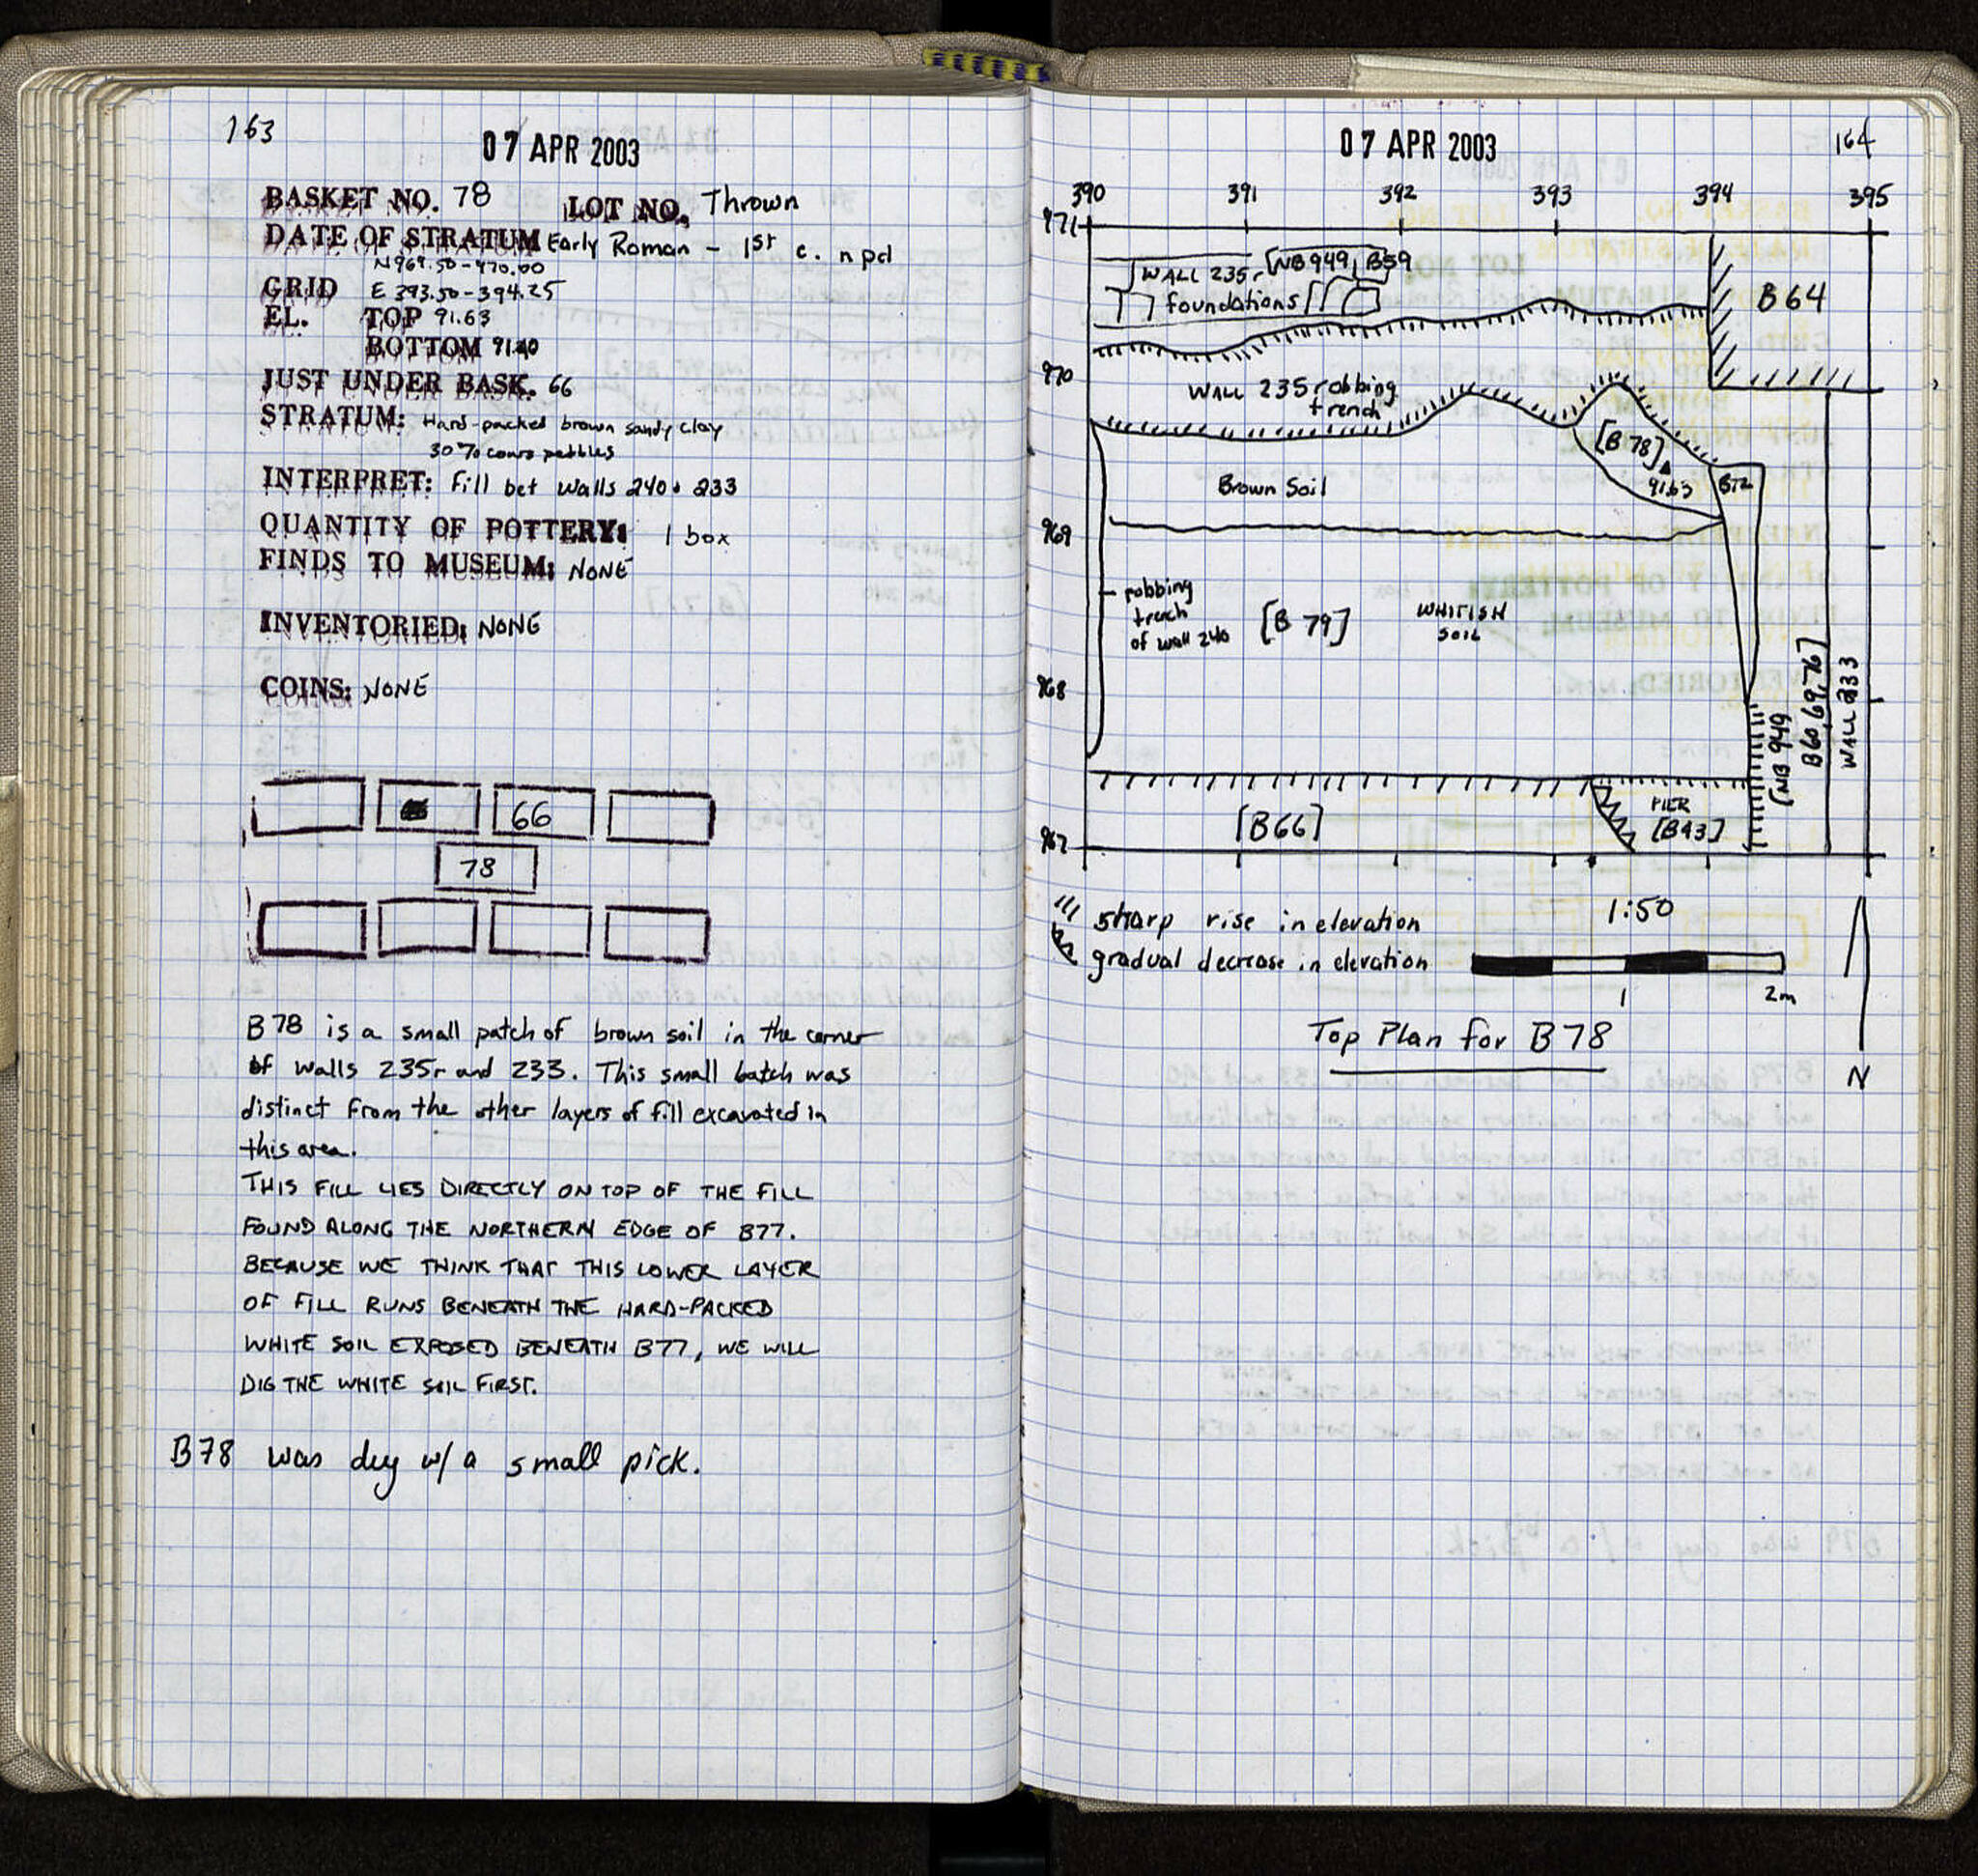 163
07 APR 2003
BASKET NO. 78 LOT NO. Thrown
DATE OF STRATUM Early Roman - 1st c. npd
N969.50-970.00
GRID E 393.50-394.25
EL. TOP 91.63
BOTTOM 91.40
JUST UNDER BASK. 66
STRATUM: Hard-packed brown sandy clay
30% coars pebbles
INTERPRET: Fill bet walls 240 + 233
QUANTITY OF POTTERY: 1 box
FINDS TO MUSEUM: NONE
INVENTORIED: NONE
COINS: NONE
66
78
B78 is a small patch of brown soil in the corner
of walls 235r and 233. This small batch was
distinct from the other layers of fill excavated in
this area.
THIS FILL LIES DIRECTLY ON TOP OF THE FILL
FOUND ALONG THE NORTHERN EDGE OF B77.
BECAUSE WE THINK THAT THIS LOWER LAYER
OF FILL RUNS BENEATH THE HARD-PACKED
WHITE SOIL EXPOSED BENEATH B77, WE WILL
DIG THE WHITE SOIL FIRST.
B78 was dug w/ a small pick.
07 APR 2003
164
390 391 392 393 394 395
971
WALL 235r [NB949, B59
foundations
B64
970
WALL 235 robbing
trench
[B 78]
91.63
B72
Brown Soil
969
robbing
trench
of wall 240
[B 79]
WHITISH
SOIL
968
[NB 949
B60,69,76]
WALL 233
[B66]
PIER
[B43]
967
sharp rise in elevation
1:50
gradual decrease in elevation
1 2m
Top Plan for B78
N